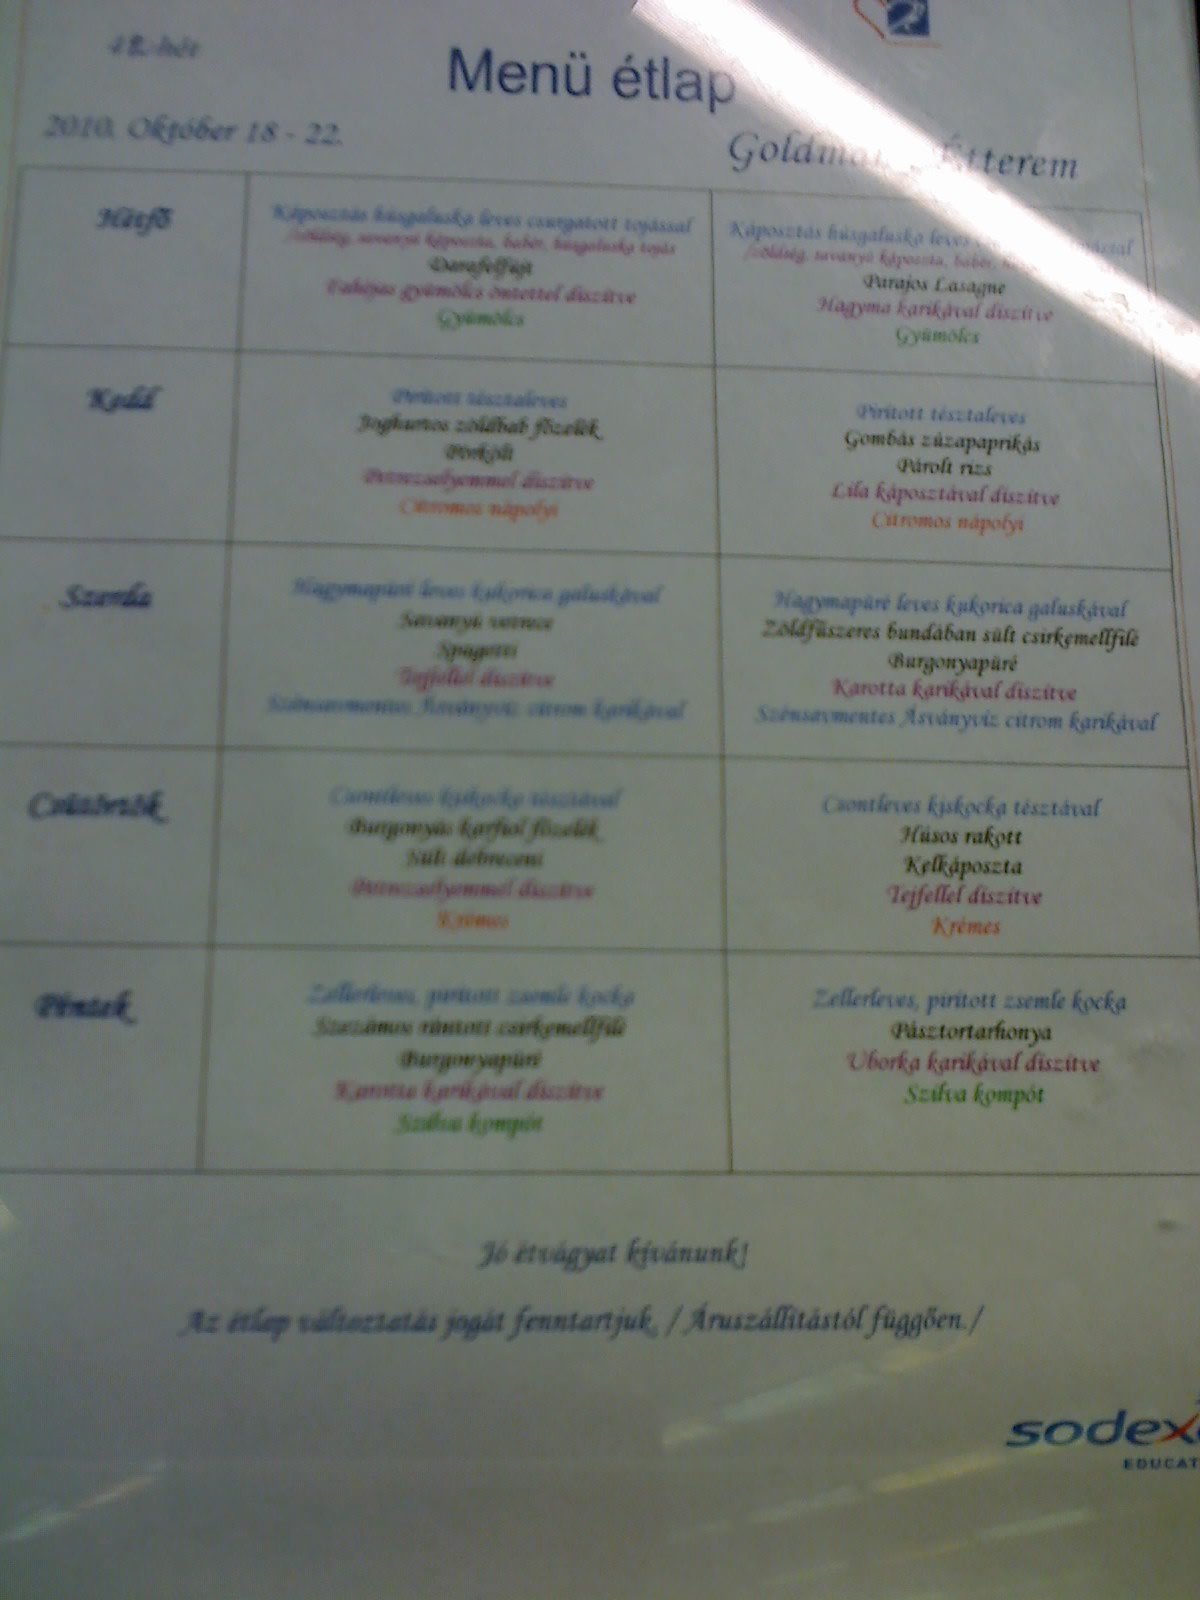 42. hét
Menü étlap
2010. Október 18 - 22.
Étterem
Hétfő
Káposztás húsgaluska leves csurgatott tojással
/zöldség, savanyú káposzta, babér, húsgaluska tojás
Darafelfújt
gyümölcs öntettel díszítve
Gyümölcs
Káposztás húsgaluska leves
/zöldség, savanyú káposzta, babér,
Parajos Lasagne
Hagyma karikával díszítve
Gyümölcs
Kedd
Pirított tésztaleves
Joghurtos zöldbab főzelék
Pörkölt
Petrezselyemmel díszítve
Citromos nápolyi
Pirított tésztaleves
Gombás zúzapaprikás
Párolt rizs
Lila káposztával díszítve
Citromos nápolyi
Szerda
Hagymapüré leves kukorica galuskával
Savanyú vetrece
Spagetti
Tejfellel díszítve
Szénsavmentes Ásványvíz citrom karikával
Hagymapüré leves kukorica galuskával
Zöldfűszeres bundában sült csirkemellfilé
Burgonyapüré
Karotta karikával díszítve
Szénsavmentes Ásványvíz citrom karikával
Csütörtök
Csontleves kiskocka tésztával
Burgonyás karfiol főzelék
Sült debreceni
Petrezselyemmel díszítve
Krémes
Csontleves kiskocka tésztával
Húsos rakott
Kelkáposzta
Tejfellel díszítve
Krémes
Péntek
Zellerleves, pirított zsemle kocka
Szezámos rántott csirkemellfilé
Burgonyapüré
Karotta karikával díszítve
Szilva kompót
Zellerleves, pirított zsemle kocka
Pásztortarhonya
Uborka karikával díszítve
Szilva kompót
Jó étvágyat kívánunk!
Az étlap változtatás jogát fenntartjuk. / Áruszállítástól függően./
sodex
EDUCAT